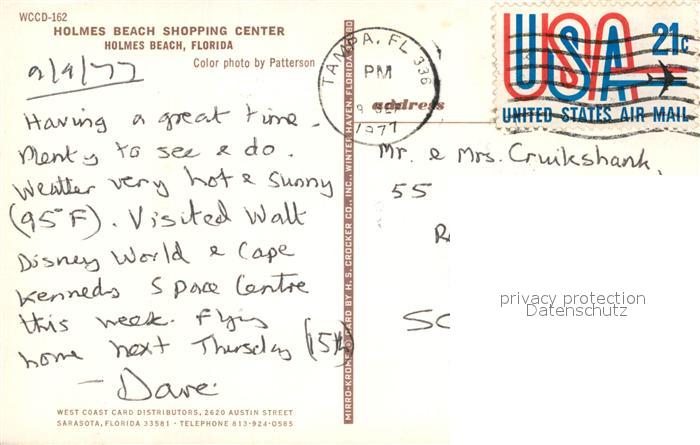 WCCD-162
HOLMES BEACH SHOPPING CENTER
HOLMES BEACH, FLORIDA
Color photo by Patterson
9/9/77
Having a great time.
Plenty to see & do.
Weather very hot & sunny
(95°F). Visited Walt
Disney World & Cape
Kennedy Space Centre
this week. Flying
home next Thursday (15th)
- Dave.
WEST COAST CARD DISTRIBUTORS, 2620 AUSTIN STREET
SARASOTA, FLORIDA 33581 • TELEPHONE 813-924-0585
MIRRO-KROME CARD BY H. S. CROCKER CO., INC., WINTER HAVEN, FLORIDA
TAMPA, FL 336
PM
9 SEP
1977
address
USA 21c
UNITED STATES AIR MAIL
Mr. & Mrs. Cruikshank,
55
privacy protection
Datenschutz